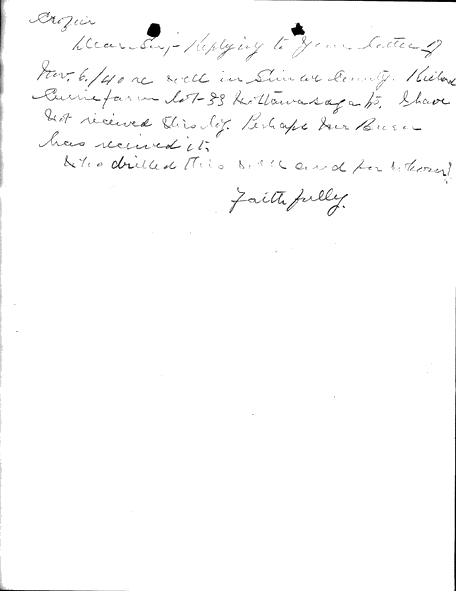 Crozier
Dear Sir; - Replying to your letter of
Nov. 6/40 re well in Simcoe County.
farm lot 33 Nottawasaga tp. I have
not received this log. Perhaps Mr
has received it.
Who drilled this well and for whom?
Faithfully.